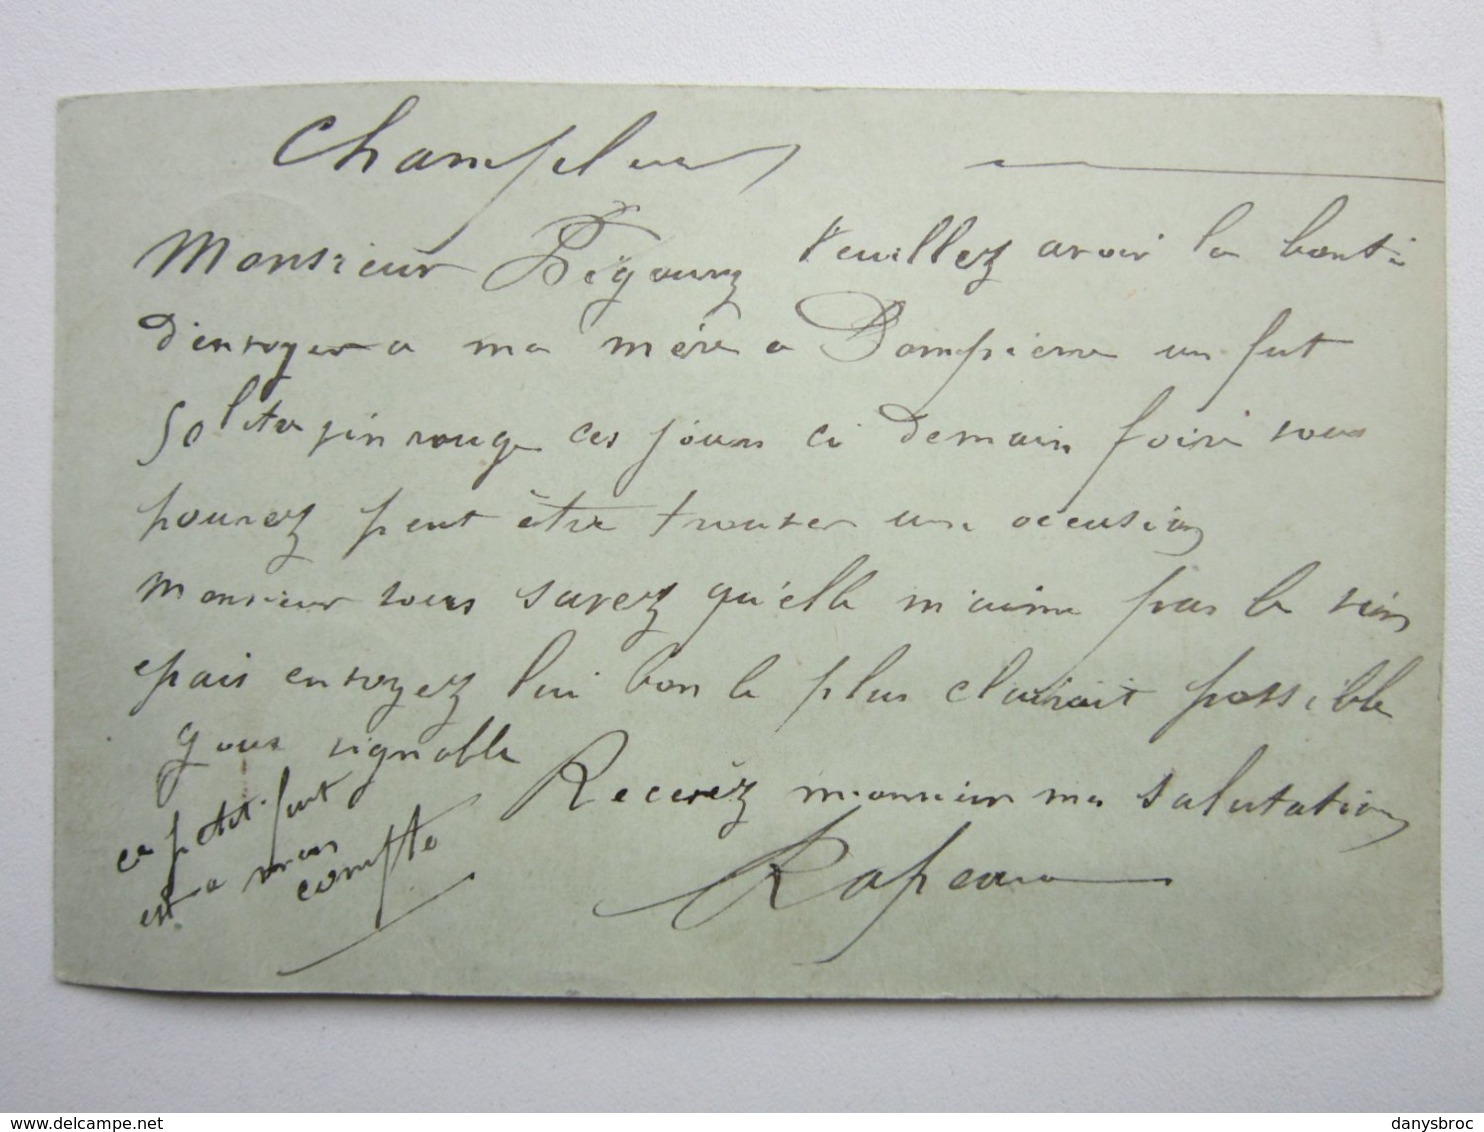 Monsieur Bégouy Veuillez avoir la bonté
d'envoyer a ma mère a Dompierre un fut
50 litre vin rouge ces jours ci demain foire vous
pourez peut être trouver une occasion
Monsieur vous savez qu'elle n'aime pas le vin
epais envoyez lui bon le plus clairait possible
gout vignoble
Recevéz monsieur ma salutation
ce petit fut
est a mon
compte
danysbroc